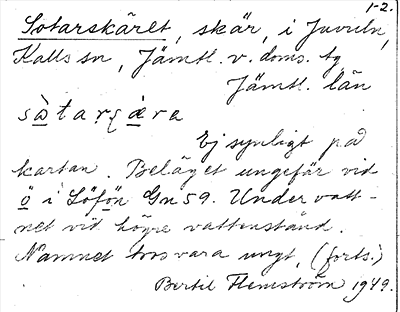 1-2.
Sotarskäret, skär, i Juveln,
Kalls sn, Jämtl. v. doms. tg
Jämtl. län
Ej synligt på
kartan. Beläget ungefär vid
ö i Löfön Gn 59. Under vatt-
net vid högre vattenstånd.
Namnet tros vara ungt. (forts.)
Bertil Flemström 1949.